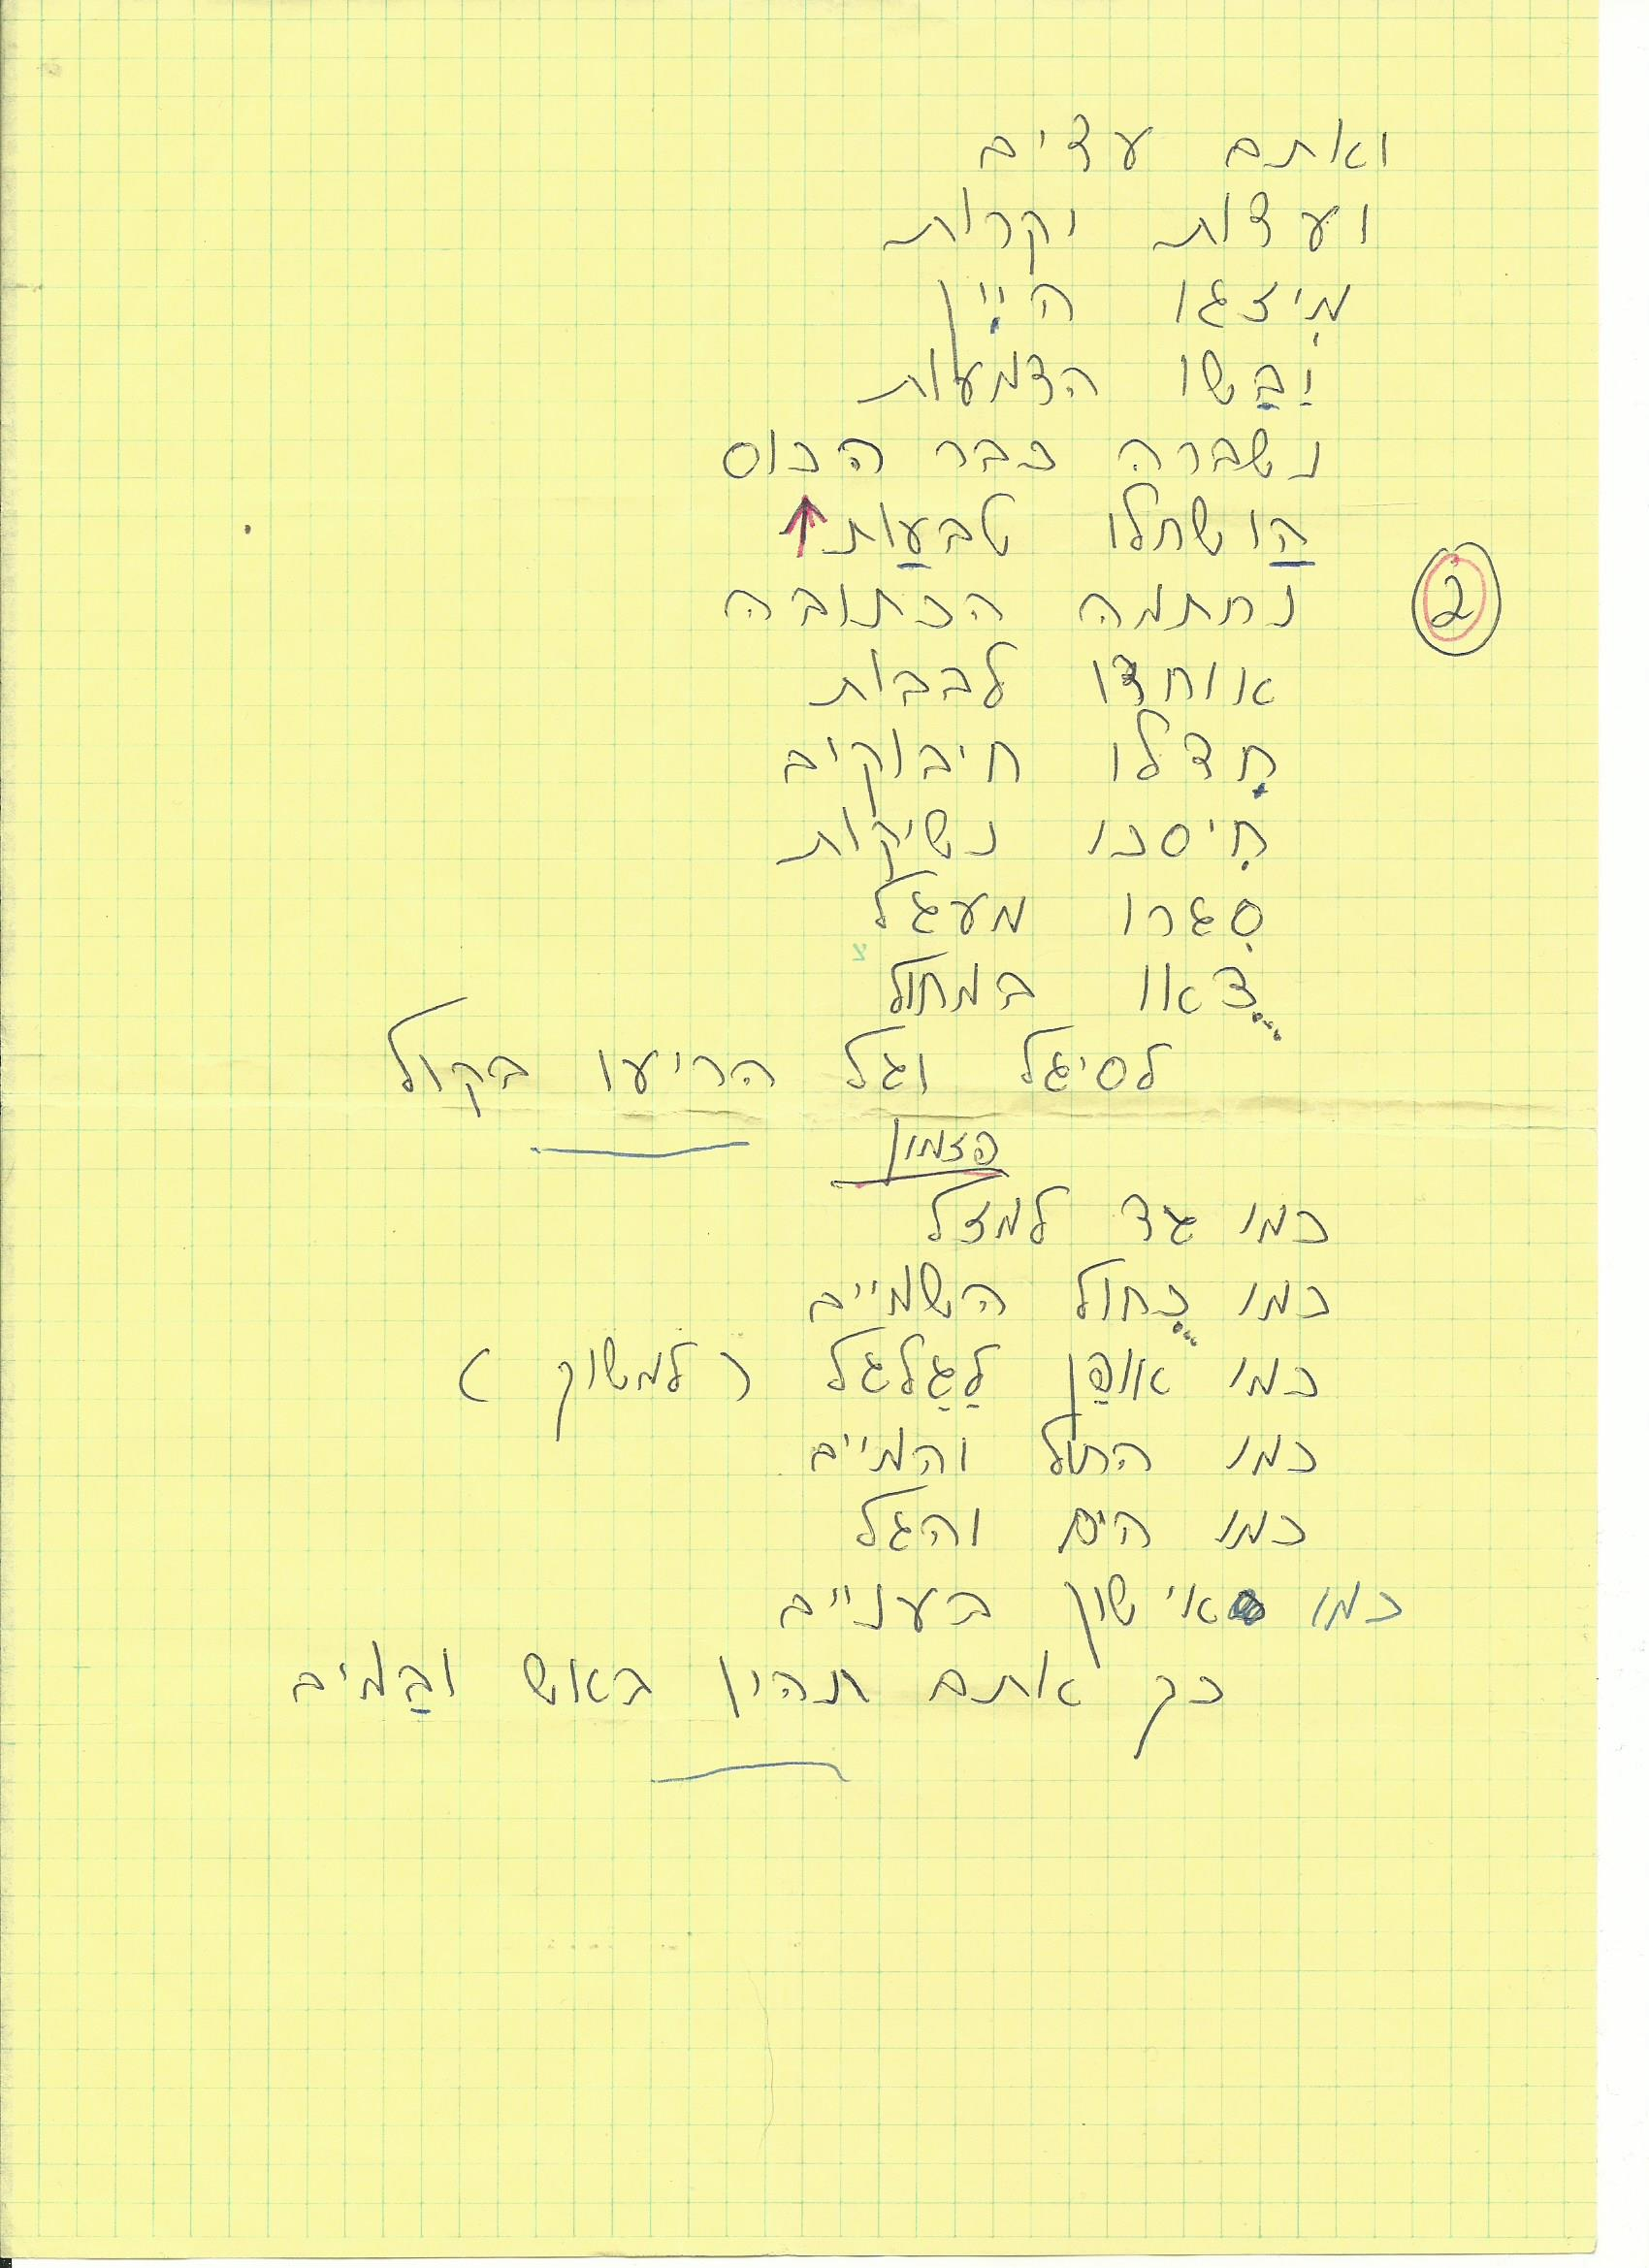 ואתם עדים
ועדות יקרות
מִיזגו היין
יַבְּשו הדמעות
נשברה כבר הכוס
הַושחלו טבעַות ↑
② נחתמה הכתובה
אוחדו לבבות
חִדלו חיבוקים
חִיסכו נשיקות
סִגרו מעגל
צאו במחול
לסיגל וגל הריעו בקול
פזמון
כמו גד למזל
כמו כְחול השמיים
כמו אופַן לַגַלגל (למשוך)
כמו החול והמיים
כמו הים והגל
כמו אישון העניים
כך אתם תהיו באש ובַמים